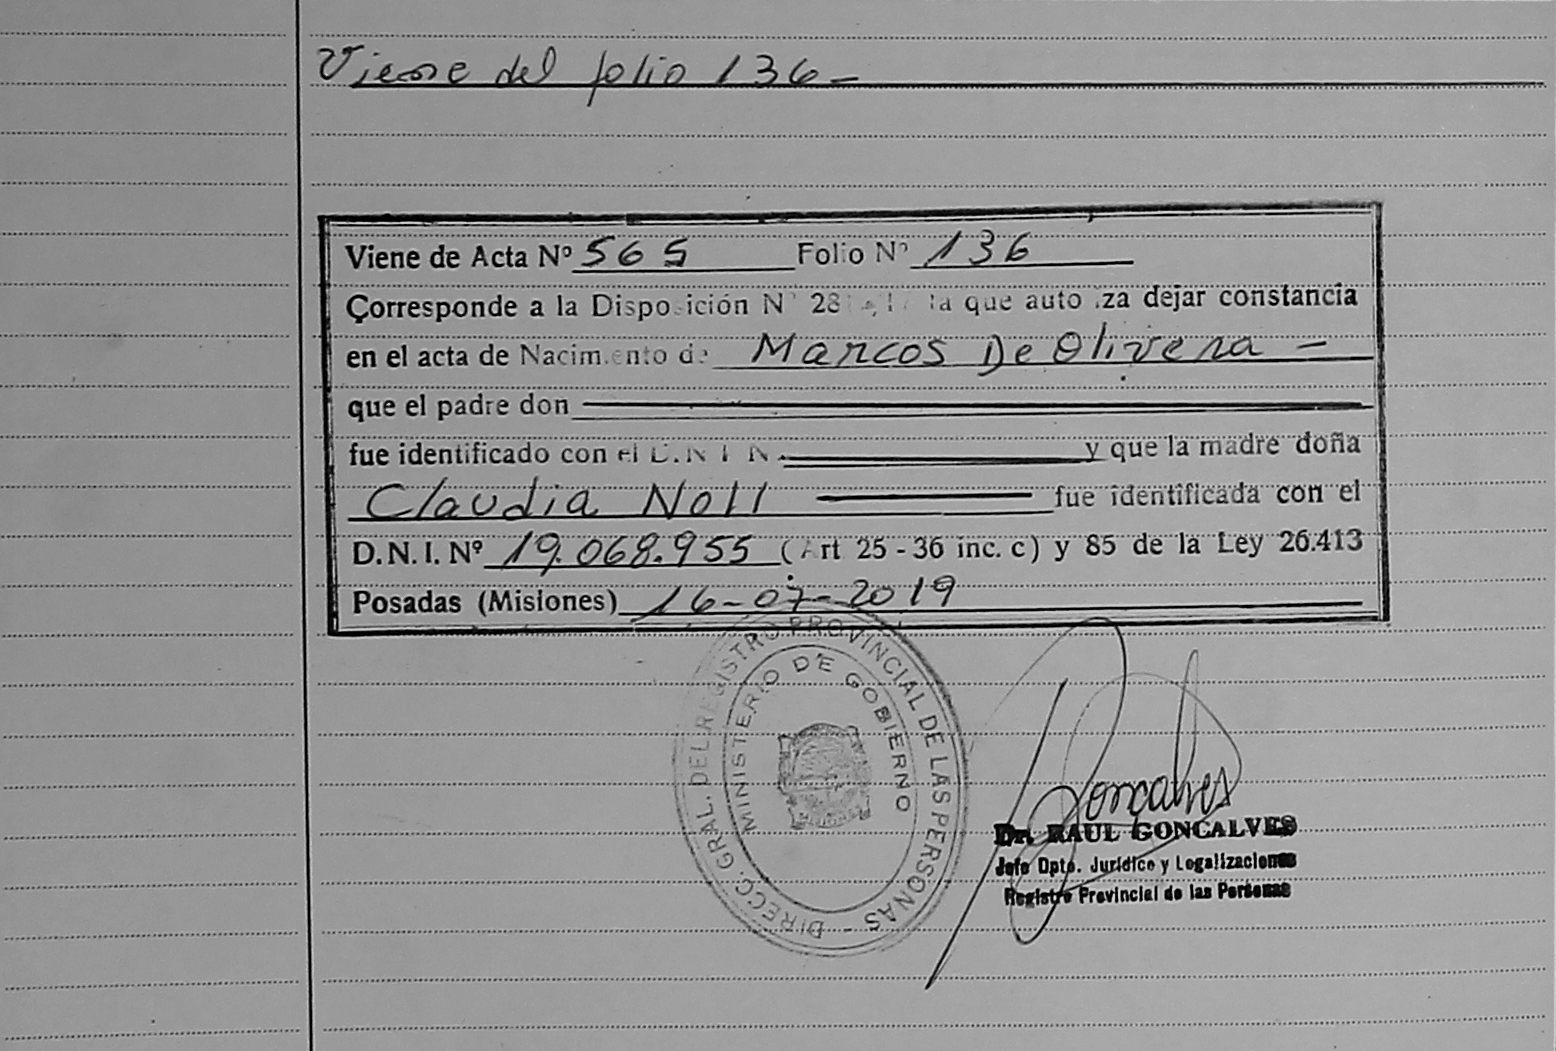 Viene del folio 136 -
Viene de Acta Nº 565 Folio Nº 136
Corresponde a la Disposición Nº la que autoriza dejar constancia
en el acta de Nacimiento de Marcos De Olivera -
que el padre don
fue identificado con el D.N.I. Nº y que la madre doña
Claudia Noll fue identificada con el
D.N.I. Nº 19.068.955 (Art 25 - 36 inc. c) y 85 de la Ley 26.413
Posadas (Misiones) 16-07-2019
DIRECC. GRAL. DEL REGISTRO PROVINCIAL DE LAS PERSONAS -
MINISTERIO DE GOBIERNO
Goncalves
Dr. RAUL GONCALVES
Jefe Dpto. Jurídico y Legalizaciones
Registro Provincial de las Personas